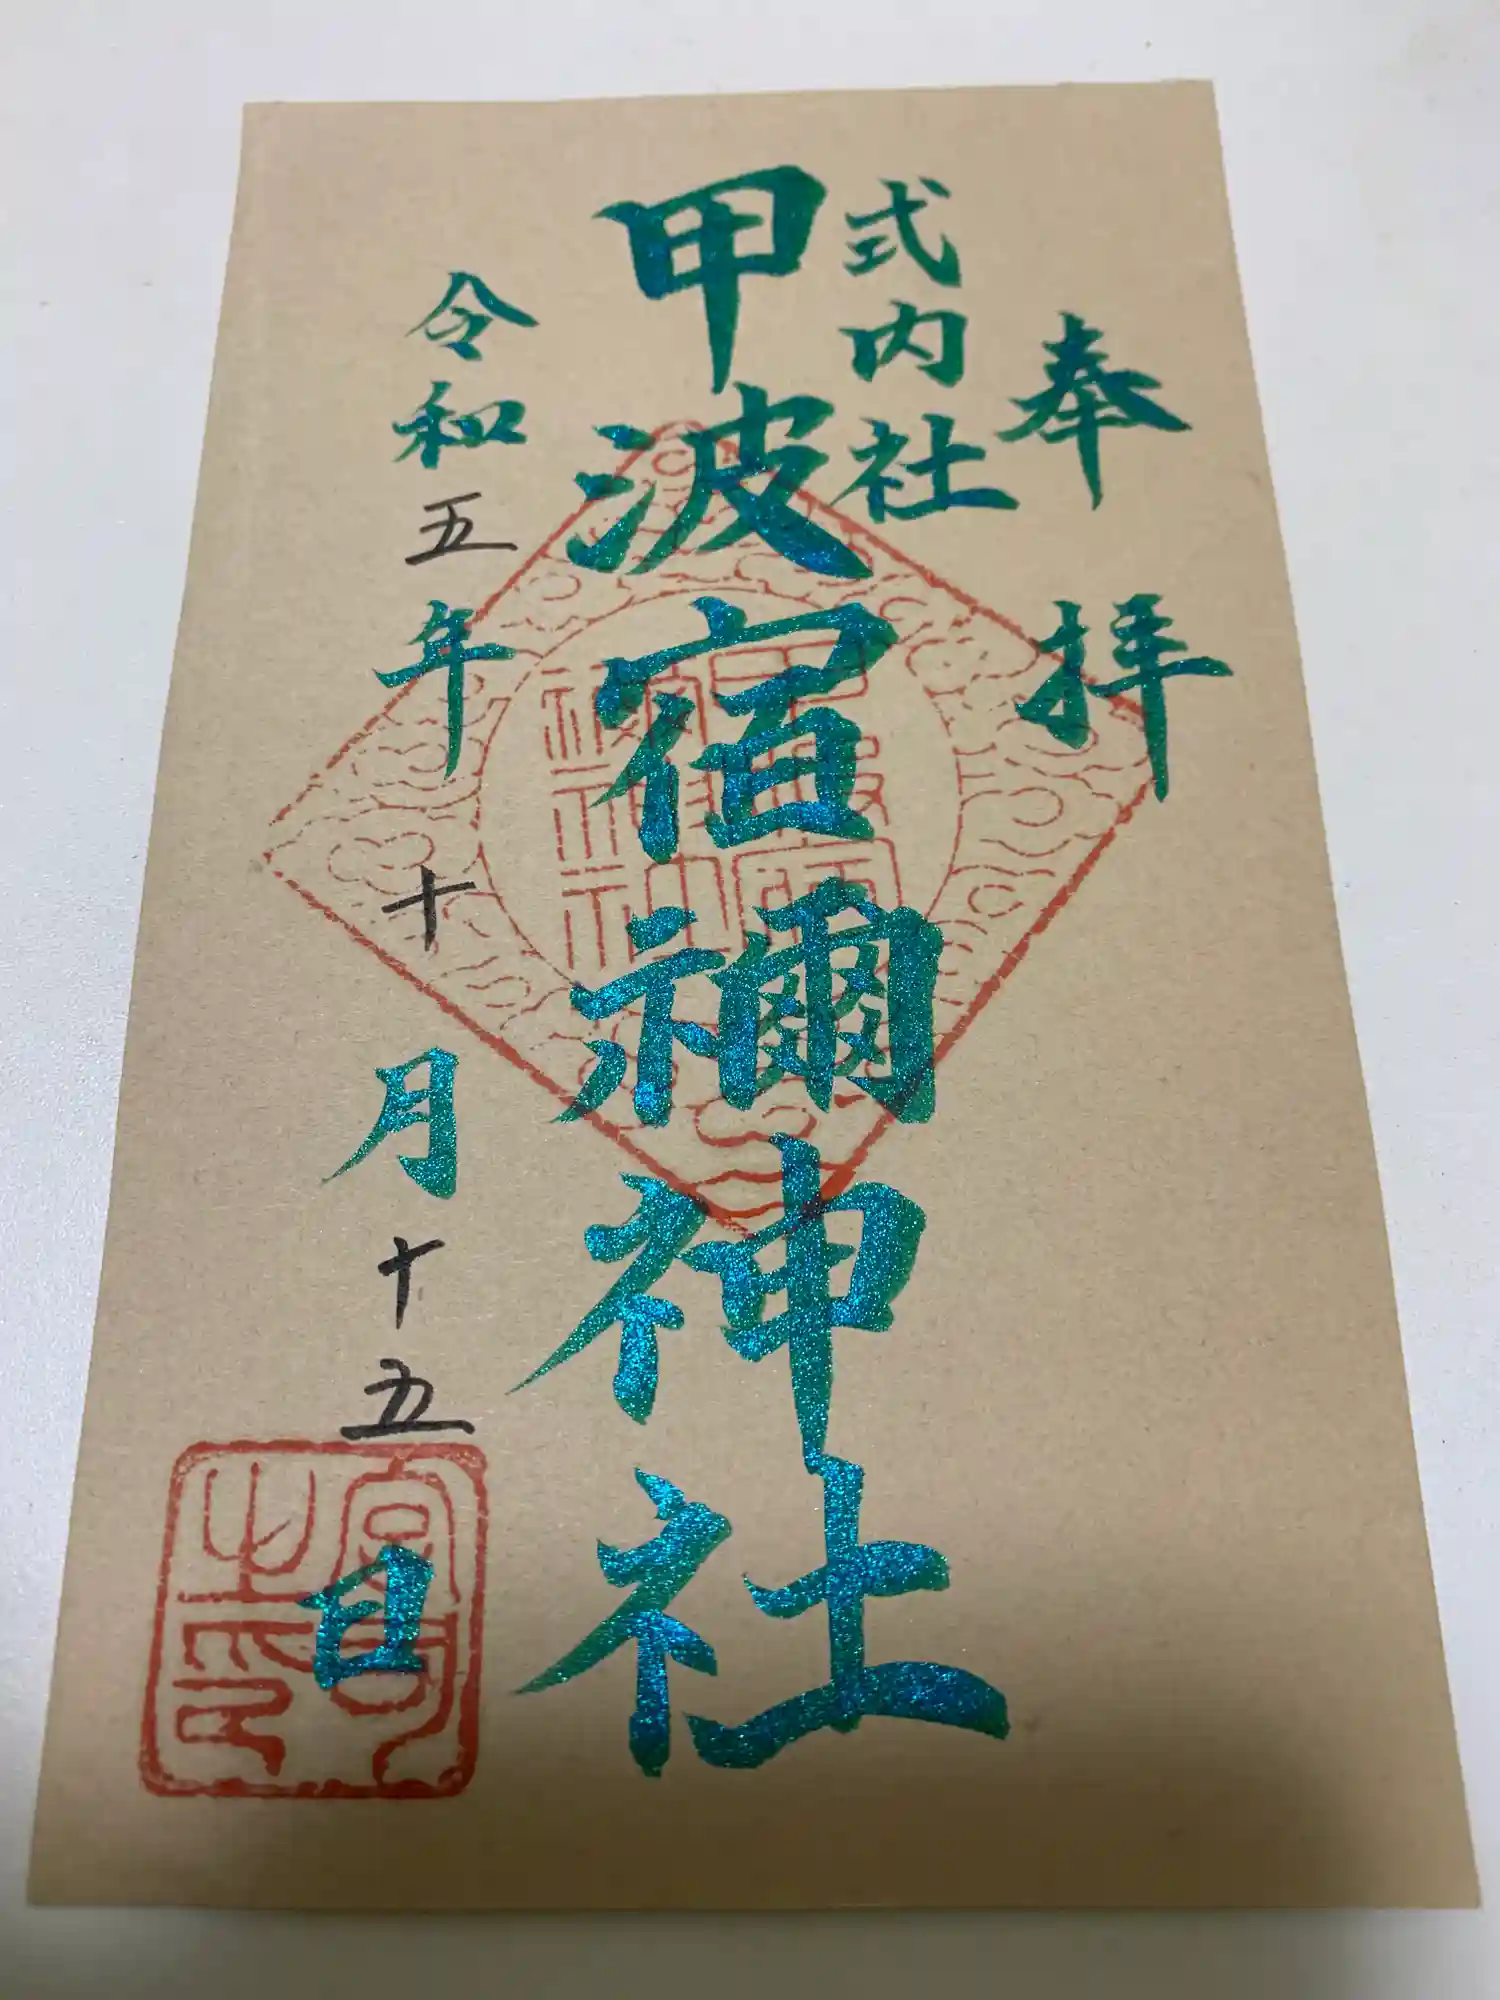 奉拝
式内社
甲波宿禰神社
令和五年十月十五日
宮司之印